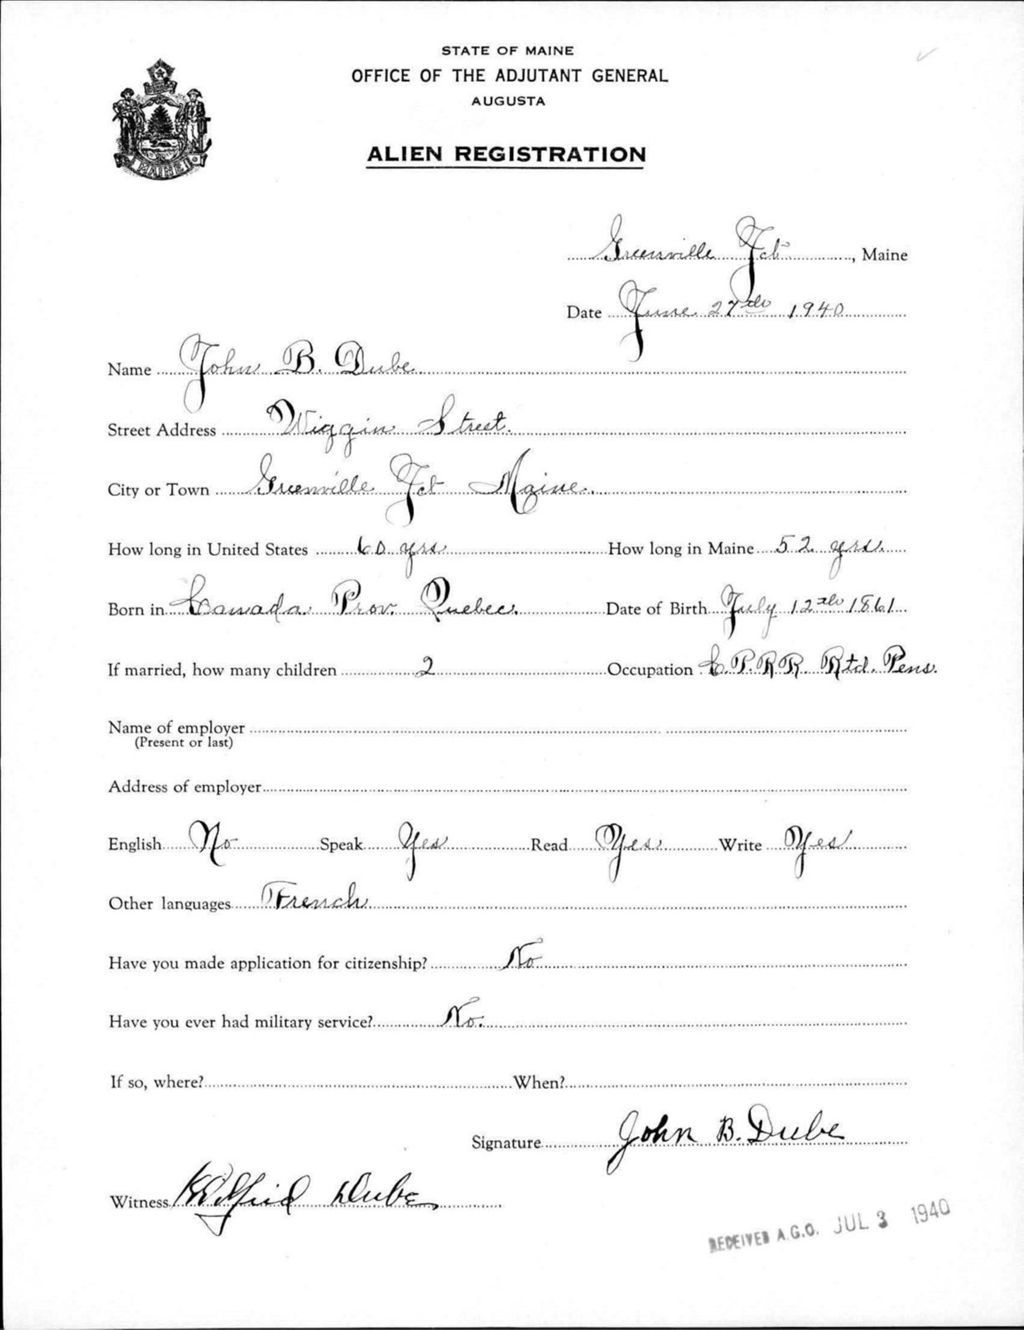 STATE OF MAINE
OFFICE OF THE ADJUTANT GENERAL
AUGUSTA
MAINE
ALIEN REGISTRATION
Greenville Jct, Maine
Date June 27th 1940
Name John B. Dube
Street Address Wiggin Street.
City or Town Greenville Jct Maine.
How long in United States 60 yrs How long in Maine 52 yrs.
Born in Canada Prov. Quebec. Date of Birth July 12th 1861
If married, how many children 2 Occupation C.P.R.R. Rtd. Pens.
Name of employer
(Present or last)
Address of employer
English No Speak Yes Read Yes Write Yes
Other languages French
Have you made application for citizenship? No
Have you ever had military service? No.
If so, where? When?
Signature John B. Dube
Witness Wilfrid Dube
RECEIVED A.G.O. JUL 3 1940